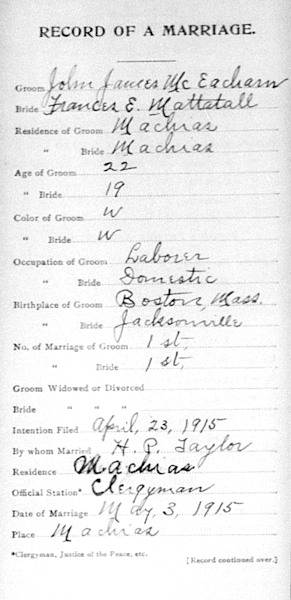 RECORD OF A MARRIAGE.
Groom John James McEacharn
Bride Frances E. Mattatall
Residence of Groom Machias
" Bride Machias
Age of Groom 22
" Bride 19
Color of Groom W
" Bride W
Occupation of Groom Laborer
" Bride Domestic
Birthplace of Groom Boston, Mass.
" Bride Jacksonville
No. of Marriage of Groom 1st,
" Bride 1st,
Groom Widowed or Divorced
Bride " " "
Intention Filed April, 23, 1915
By whom Married H. P. Taylor
Residence Machias
Official Station* Clergyman
Date of Marriage May, 3, 1915
Place Machias
*Clergyman, Justice of the Peace, etc. [Record continued over.]